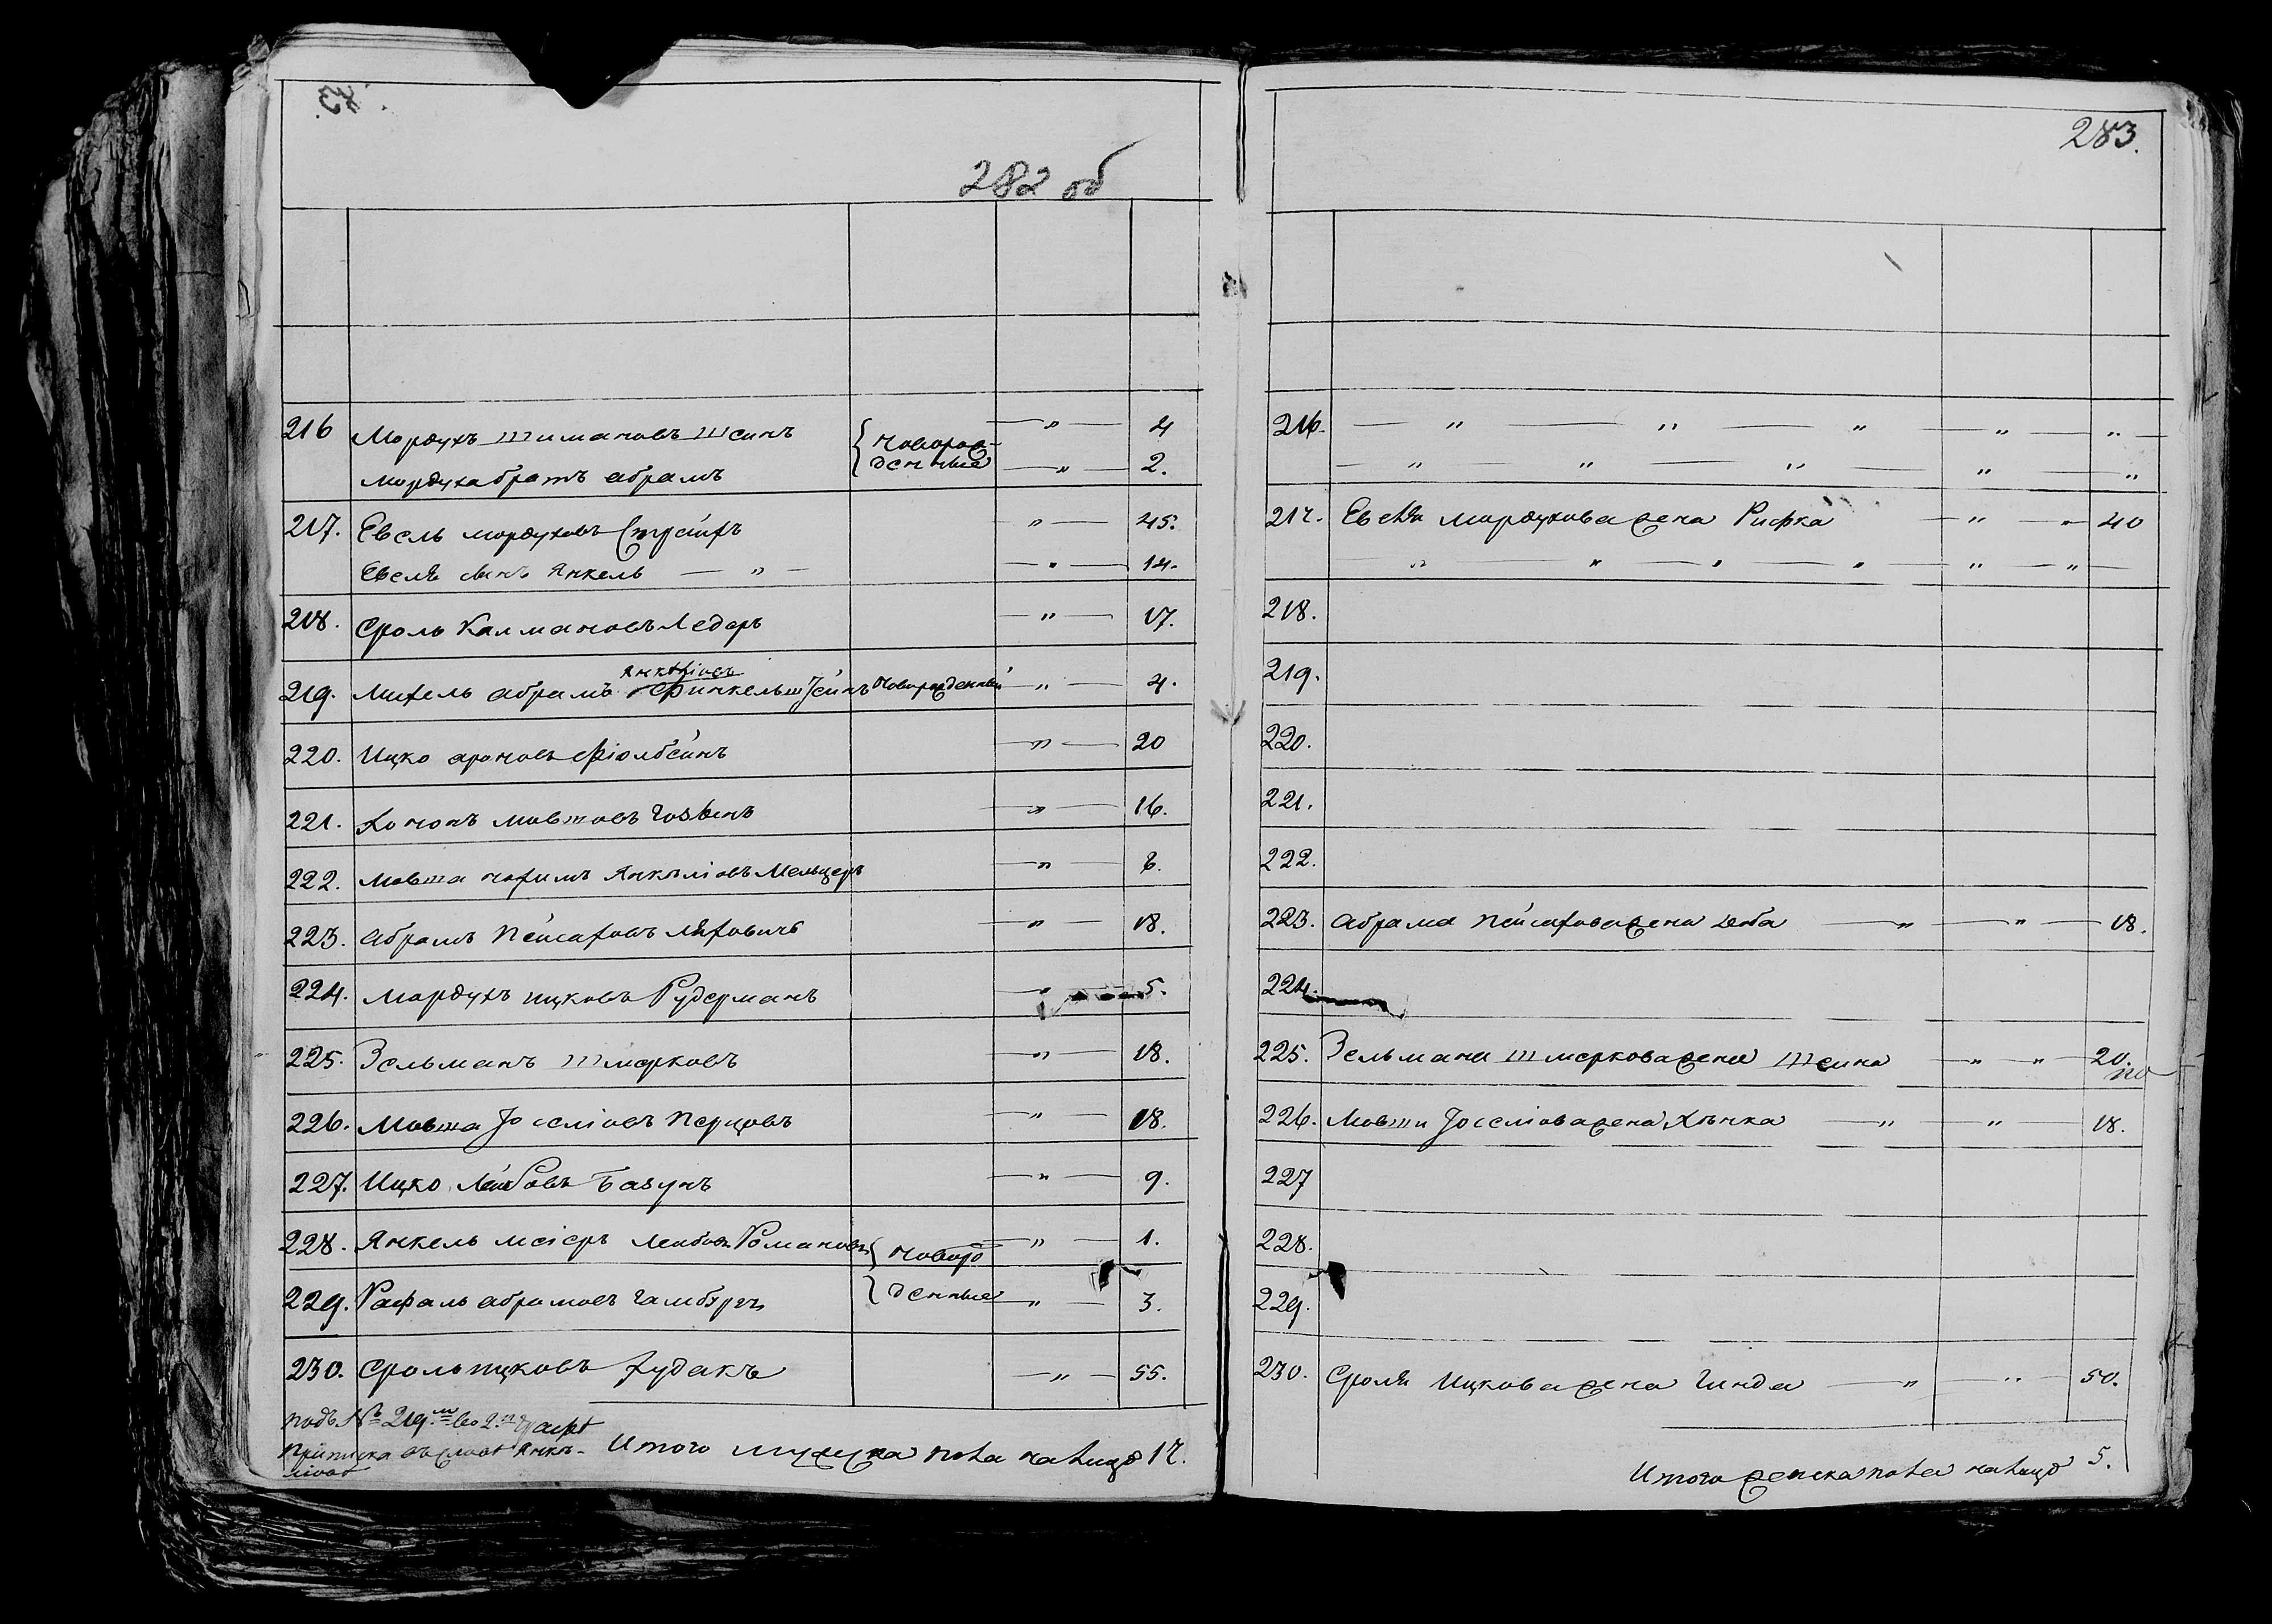 282 об
216 Мордухъ Шимановъ Шеинъ новорож- " 4
Мордуха братъ абрамъ денные " 2.
217. Евель мордуховъ Страйхъ " 45.
Евеля сынъ Янкель " " 14.
218. Сроль Калмановъ Ледеръ " 17.
Янкѣліовъ
219. Михель абрамъ Финкельштейнъ новорожденный " 4.
220. Ицко ароновъ Фіолбейнъ " 20
221. Хононъ мовшовъ " 16.
222. мовша нохимъ Янкѣліовъ Мельцеръ "
223. абрамъ Пейсаховъ Ляховичъ " 18.
224. мордухъ ицковъ Рудерманъ " 5.
225. Зельманъ Шмерковъ " 18.
226. мовша Іоселіовъ Перцовъ " 18.
227. Ицко Лейбовъ Базунъ " 9.
228. Янкель меіеръ Лейбовъ Романовъ новоро " 1.
229. Рафаль абрамовъ Гамбургъ денные " 3.
230. Сроль ицковъ Худакъ " 55.
подъ № 219.м во 2.й графѣ
Приписка въ словѣ Янкѣ-
ліовъ
Итого мужеска пола на лицо 17.
283.
216. " " " " "
" " " " "
217. Евеля мордухова жена Рифка " " 40
" " " " " "
218.
219.
220.
221.
222.
223. абрама Пейсахова жена " " 18.
224.
225. Зельмана Шмеркова жена Шеина " " 20.
226. Мовши Іоселіова жена Хѣнка " " 18.
227
228.
229.
230. Сроля Ицкова жена Гинда " " 50.
Итого женска пола на лицо 5.